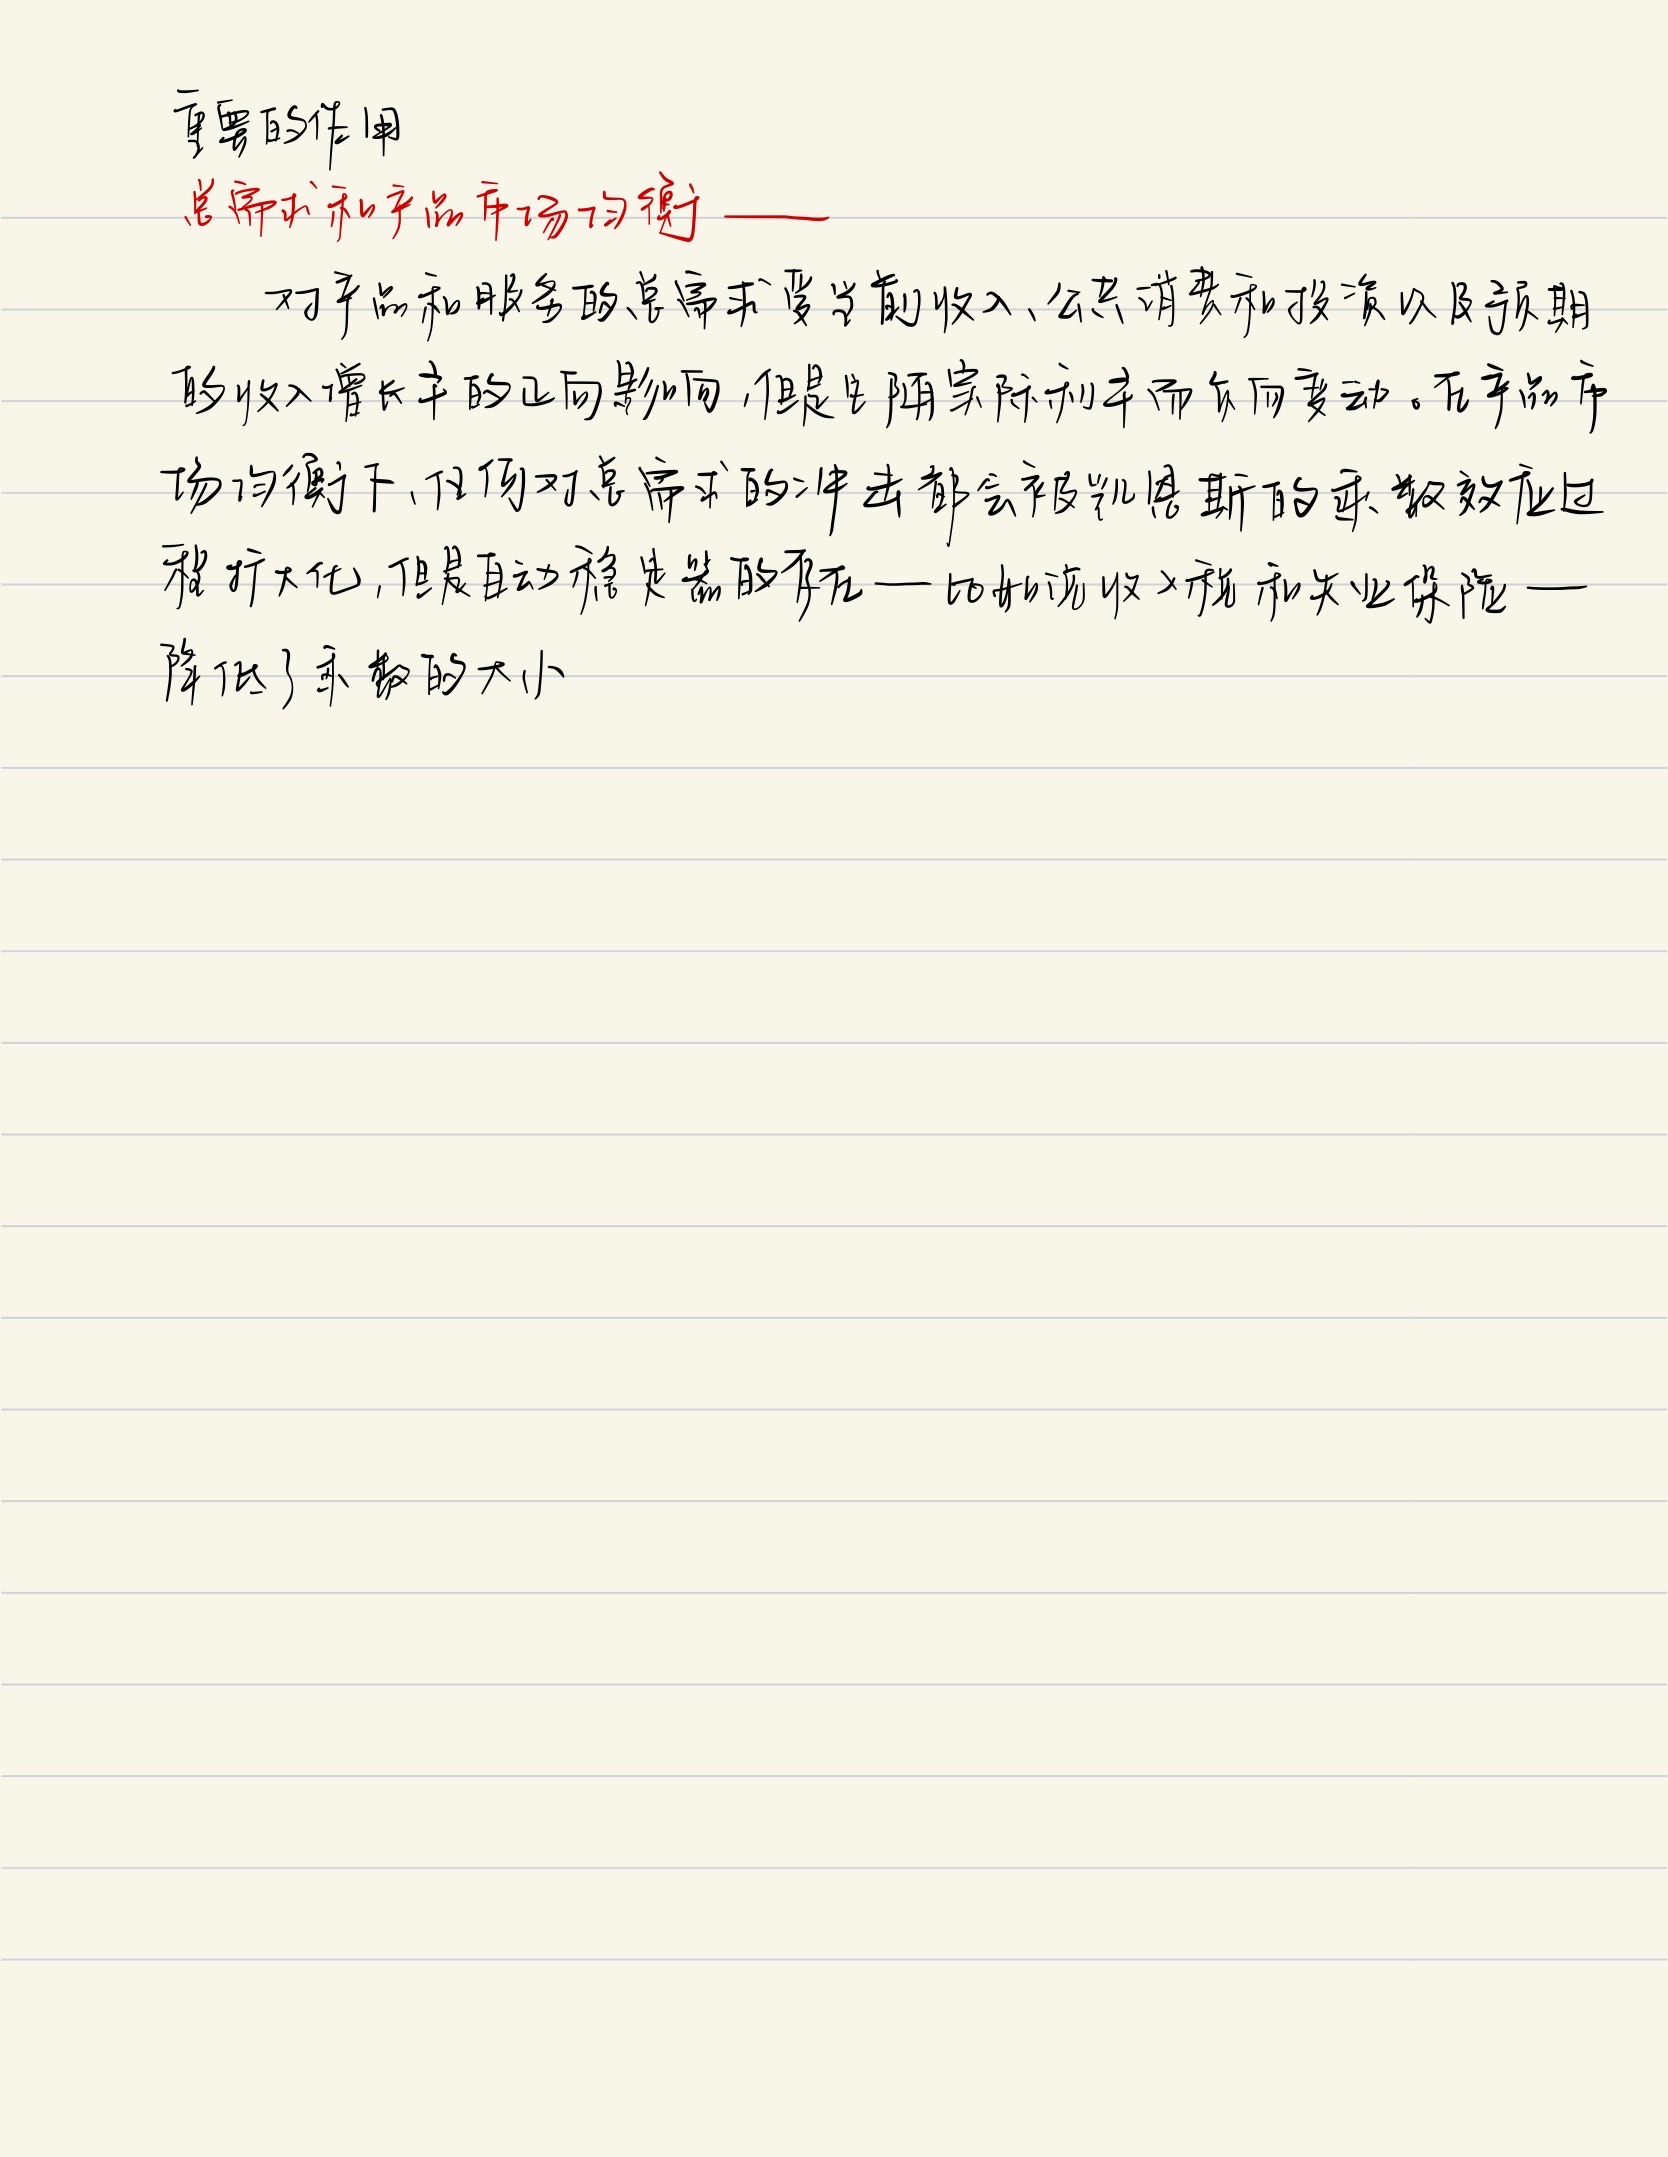 重要的作用
总需求和产品市场均衡——
对产品和服务的总需求受当前收入、公共消费和投资以及预期
的收入增长率的正向影响,但是它随实际利率而负向变动。在产品市
场均衡下、任何对总需求的冲击都会被凯恩斯的乘数效应过
程扩大化,但是自动稳定器的存在——比如说收入税和失业保险——
降低了乘数的大小